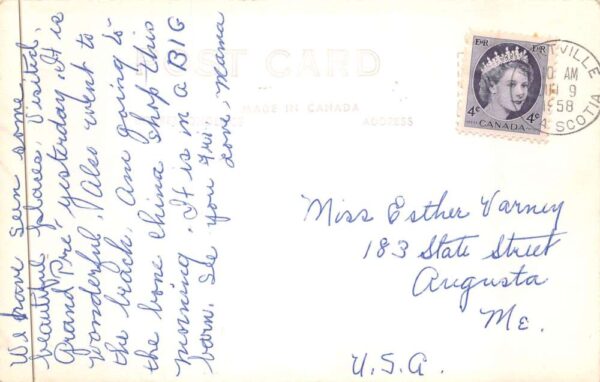 We have seen some
beautiful places. Visited
Grand Pré yesterday. It is
wonderful. Also went to
the beach. Am going to
the bone china shop this
morning. It is in a BIG
barn. See you Fri.
Love, Mama
POST CARD
MADE IN CANADA
ADDRESS
EIIR EIIR
4¢ CANADA 4¢
VILLE
0 AM
9
1958
A SCOTIA
Miss Esther Varney
183 State Street
Augusta
Me.
U.S.A.